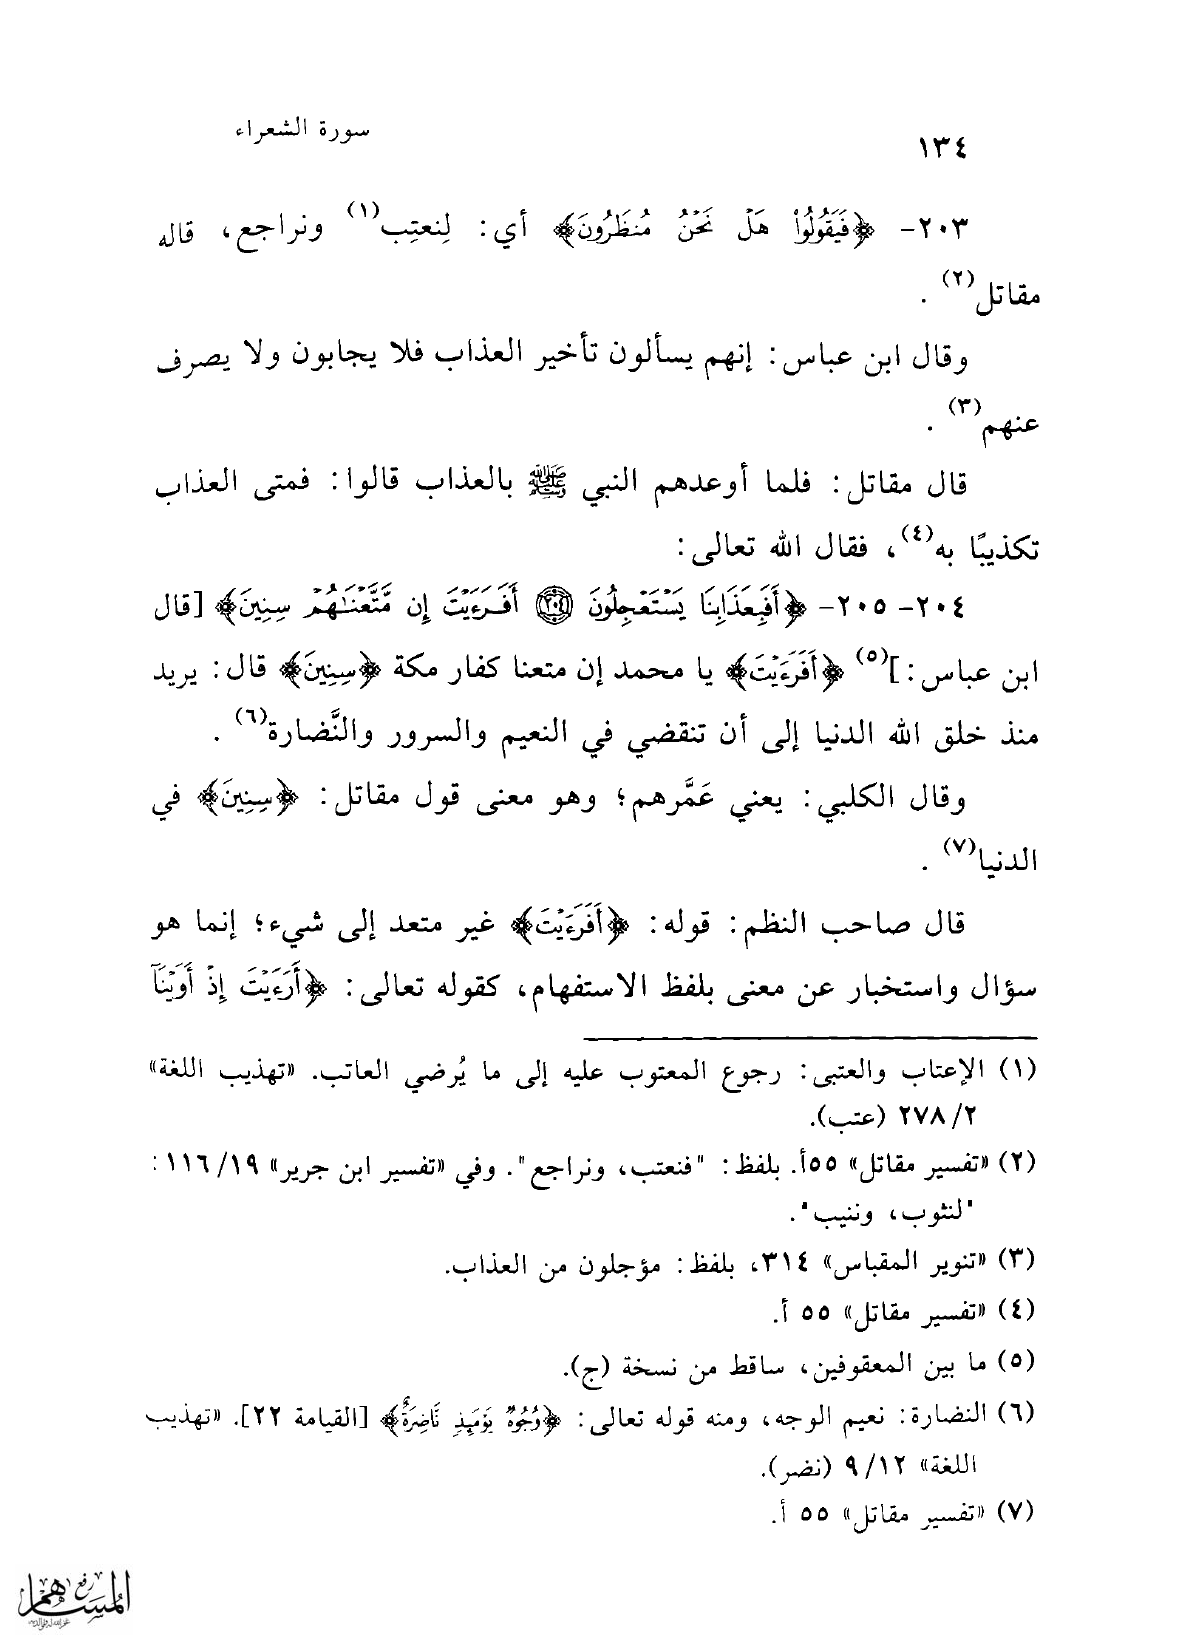 سورة الشعراء
١٣٤
٢٠٣- ﴿فَيَقُولُوا۟ هَلْ نَحْنُ مُنظَرُونَ﴾ أي: لِنعتِب(١) ونراجع، قاله
مقاتل(٢) .
وقال ابن عباس: إنهم يسألون تأخير العذاب فلا يجابون ولا يصرف
عنهم(٣) .
قال مقاتل: فلما أوعدهم النبي ﷺ بالعذاب قالوا: فمتى العذاب
تكذيبًا به(٤)، فقال الله تعالى:
٢٠٤- ٢٠٥- ﴿أَفَبِعَذَابِنَا يَسْتَعْجِلُونَ ۝٢٠٤ أَفَرَءَيْتَ إِن مَّتَّعْنَٰهُمْ سِنِينَ﴾ [قال
ابن عباس:](٥) ﴿أَفَرَءَيْتَ﴾ يا محمد إن متعنا كفار مكة ﴿سِنِينَ﴾ قال: يريد
منذ خلق الله الدنيا إلى أن تنقضي في النعيم والسرور والنَّضارة(٦) .
وقال الكلبي: يعني عَمَّرهم؛ وهو معنى قول مقاتل: ﴿سِنِينَ﴾ في
الدنيا(٧) .
قال صاحب النظم: قوله: ﴿أَفَرَءَيْتَ﴾ غير متعد إلى شيء؛ إنما هو
سؤال واستخبار عن معنى بلفظ الاستفهام، كقوله تعالى: ﴿أَرَءَيْتَ إِذْ أَوَيْنَآ
(١) الإعتاب والعتبى: رجوع المعتوب عليه إلى ما يُرضي العاتب. «تهذيب اللغة»
٢/ ٢٧٨ (عتب).
(٢) «تفسير مقاتل» ٥٥أ. بلفظ: "فنعتب، ونراجع". وفي «تفسير ابن جرير» ١٩/ ١١٦:
"لنثوب، وننيب".
(٣) «تنوير المقباس» ٣١٤، بلفظ: مؤجلون من العذاب.
(٤) «تفسير مقاتل» ٥٥ أ.
(٥) ما بين المعقوفين، ساقط من نسخة (ج).
(٦) النضارة: نعيم الوجه، ومنه قوله تعالى: ﴿وُجُوهٌ يَوْمَئِذٍ نَّاضِرَةٌ﴾ [القيامة ٢٢]. «تهذيب
اللغة» ١٢/ ٩ (نضر).
(٧) «تفسير مقاتل» ٥٥ أ.